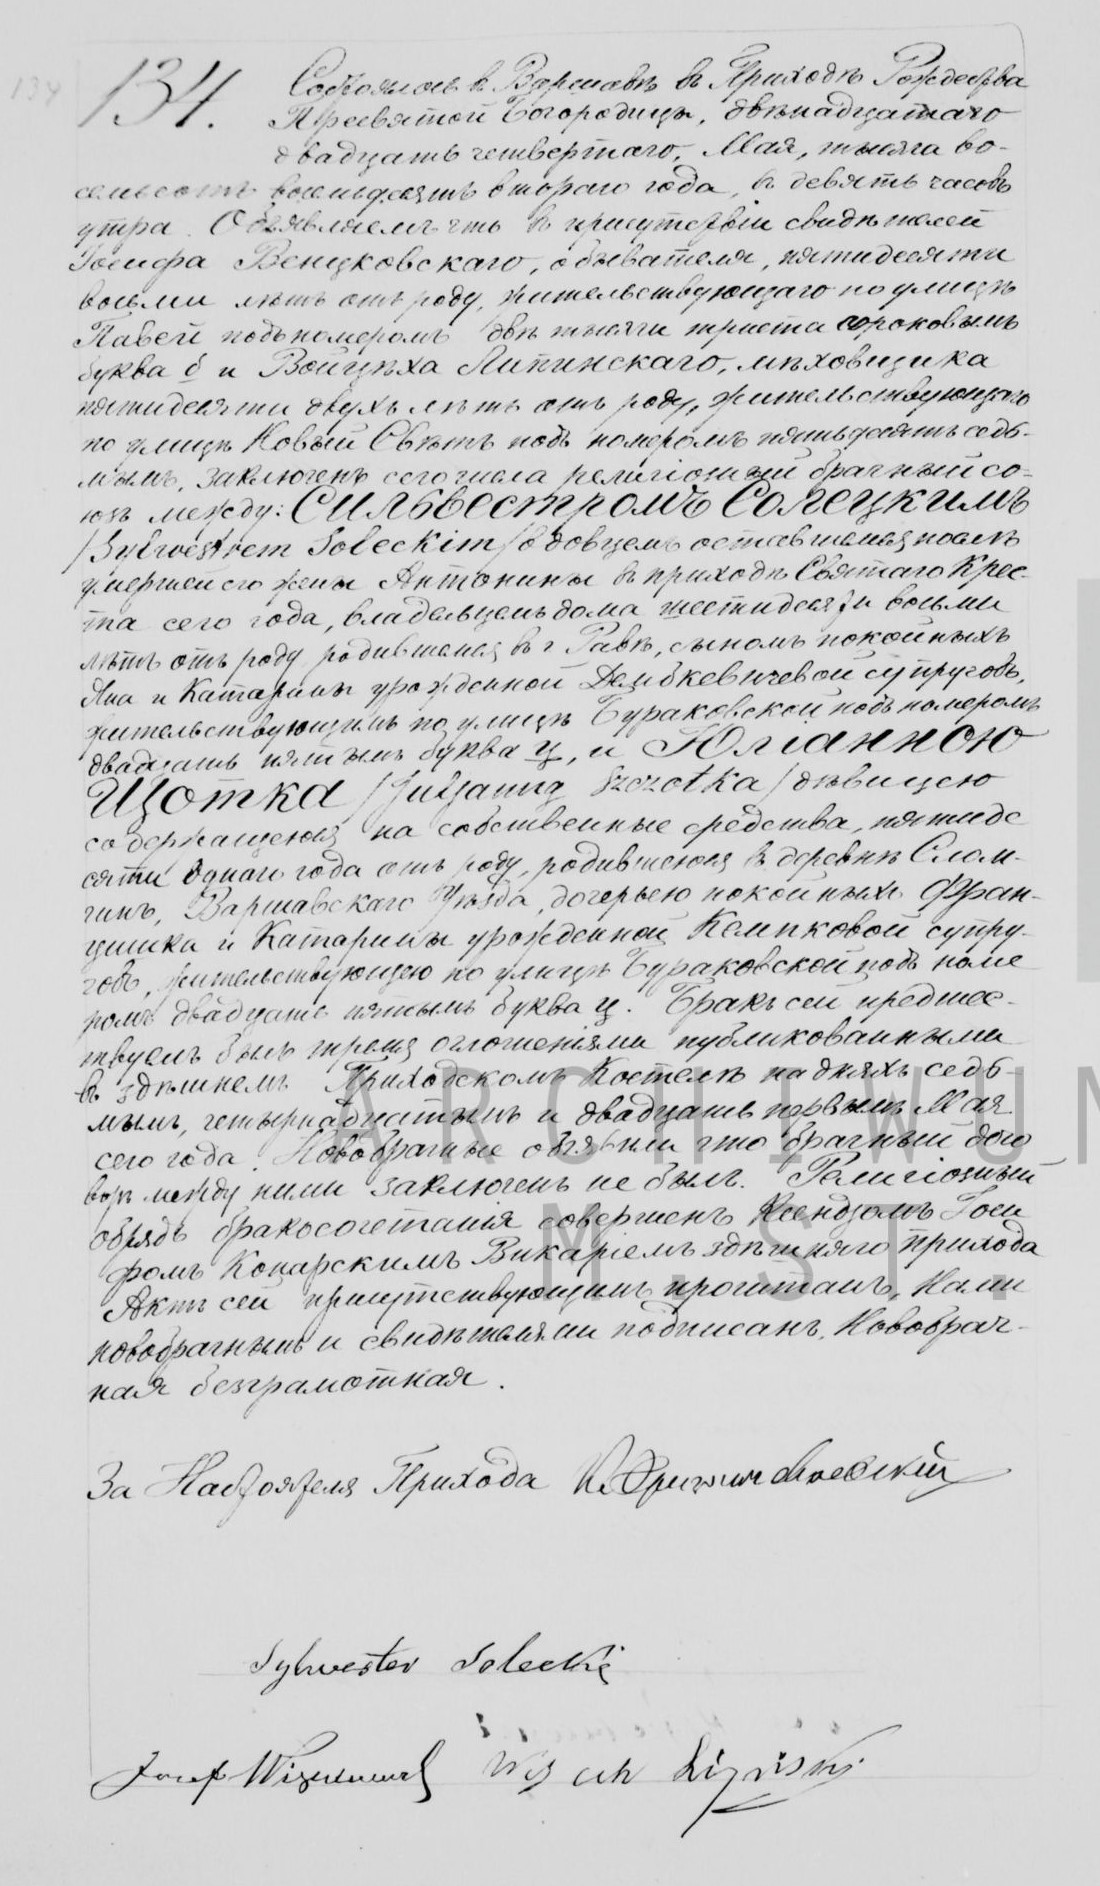 134
134.
Состоялось в Варшавѣ в Приходѣ Рождества
Пресвятой Богородицы, двѣнадцатаго
двадцать четвертаго, Мая, тысяча во-
семьсотъ восемьдесятъ втораго года, въ девять часовъ
утра. Объявляемъ что в присутствіи свидѣтелей
Іосифа Венцковскаго, обывателя, пятидесяти
восьми лѣтъ отъ роду, жительствующаго по улицѣ
Павей подъ номеромъ двѣ тысячи триста сороковымъ
буква б и Войцѣха Липинскаго, мѣховщика
пятидесяти двухъ лѣтъ отъ роду, жительствующаго
по улицѣ Новый Свѣтъ подъ номеромъ пятьдесятъ седь-
мымъ, заключенъ сего числа религіозный брачный со-
юзъ между: Сильвестромъ Солецкимъ
/Sylwestrem Soleckim/ вдовцемъ оставшимся послѣ
умершей его жены Антонины в приходѣ Святаго Крес-
та сего года, владельцемъ дома шестидесяти восьми
лѣтъ отъ роду родившимся в г Равѣ, сыномъ покойныхъ
Яна и Катарины урожденной Дембкевичевой супруговъ,
жительствующимъ по улицѣ Бураковской подъ номеромъ
двадцать пятымъ буква ц, и Юліанною
Щотка /Julianną Szczotka/ дѣвицею
содержащеюся на собственные средства, пятиде
сяти одного года отъ роду, родившеюся в деревнѣ Слом-
чинъ, Варшавскаго Уѣзда, дочерью покойныхъ Фран-
цишка и Катарины урожденной Кемпковой супру-
говъ, жительствующею по улицѣ Бураковской подъ номе
ромъ двадцать пятымъ буква ц. Бракъ сей предшес-
твуемъ былъ тремя оглошеніями публикованными
въ здѣшнемъ Приходскомъ Костелѣ на дняхъ седь-
мымъ, четырнадцатымъ и двадцать первымъ Мая
сего года. Новобрачные объявили что брачный дого
воръ между ними заключенъ не былъ. Религіозный
обрядъ бракосочетанія совершенъ Ксендзомъ Іоси
фомъ Коцарскимъ Викаріемъ здѣшняго прихода
Актъ сей присутствующимъ прочитанъ, Нами
новобрачнымъ и свидѣтелями подписанъ, Новобрач-
ная безграмотная.
За Настоятеля Прихода К.
Sylwester Solecki
Józef Lipiński
ARCHIWUM
M. ST.